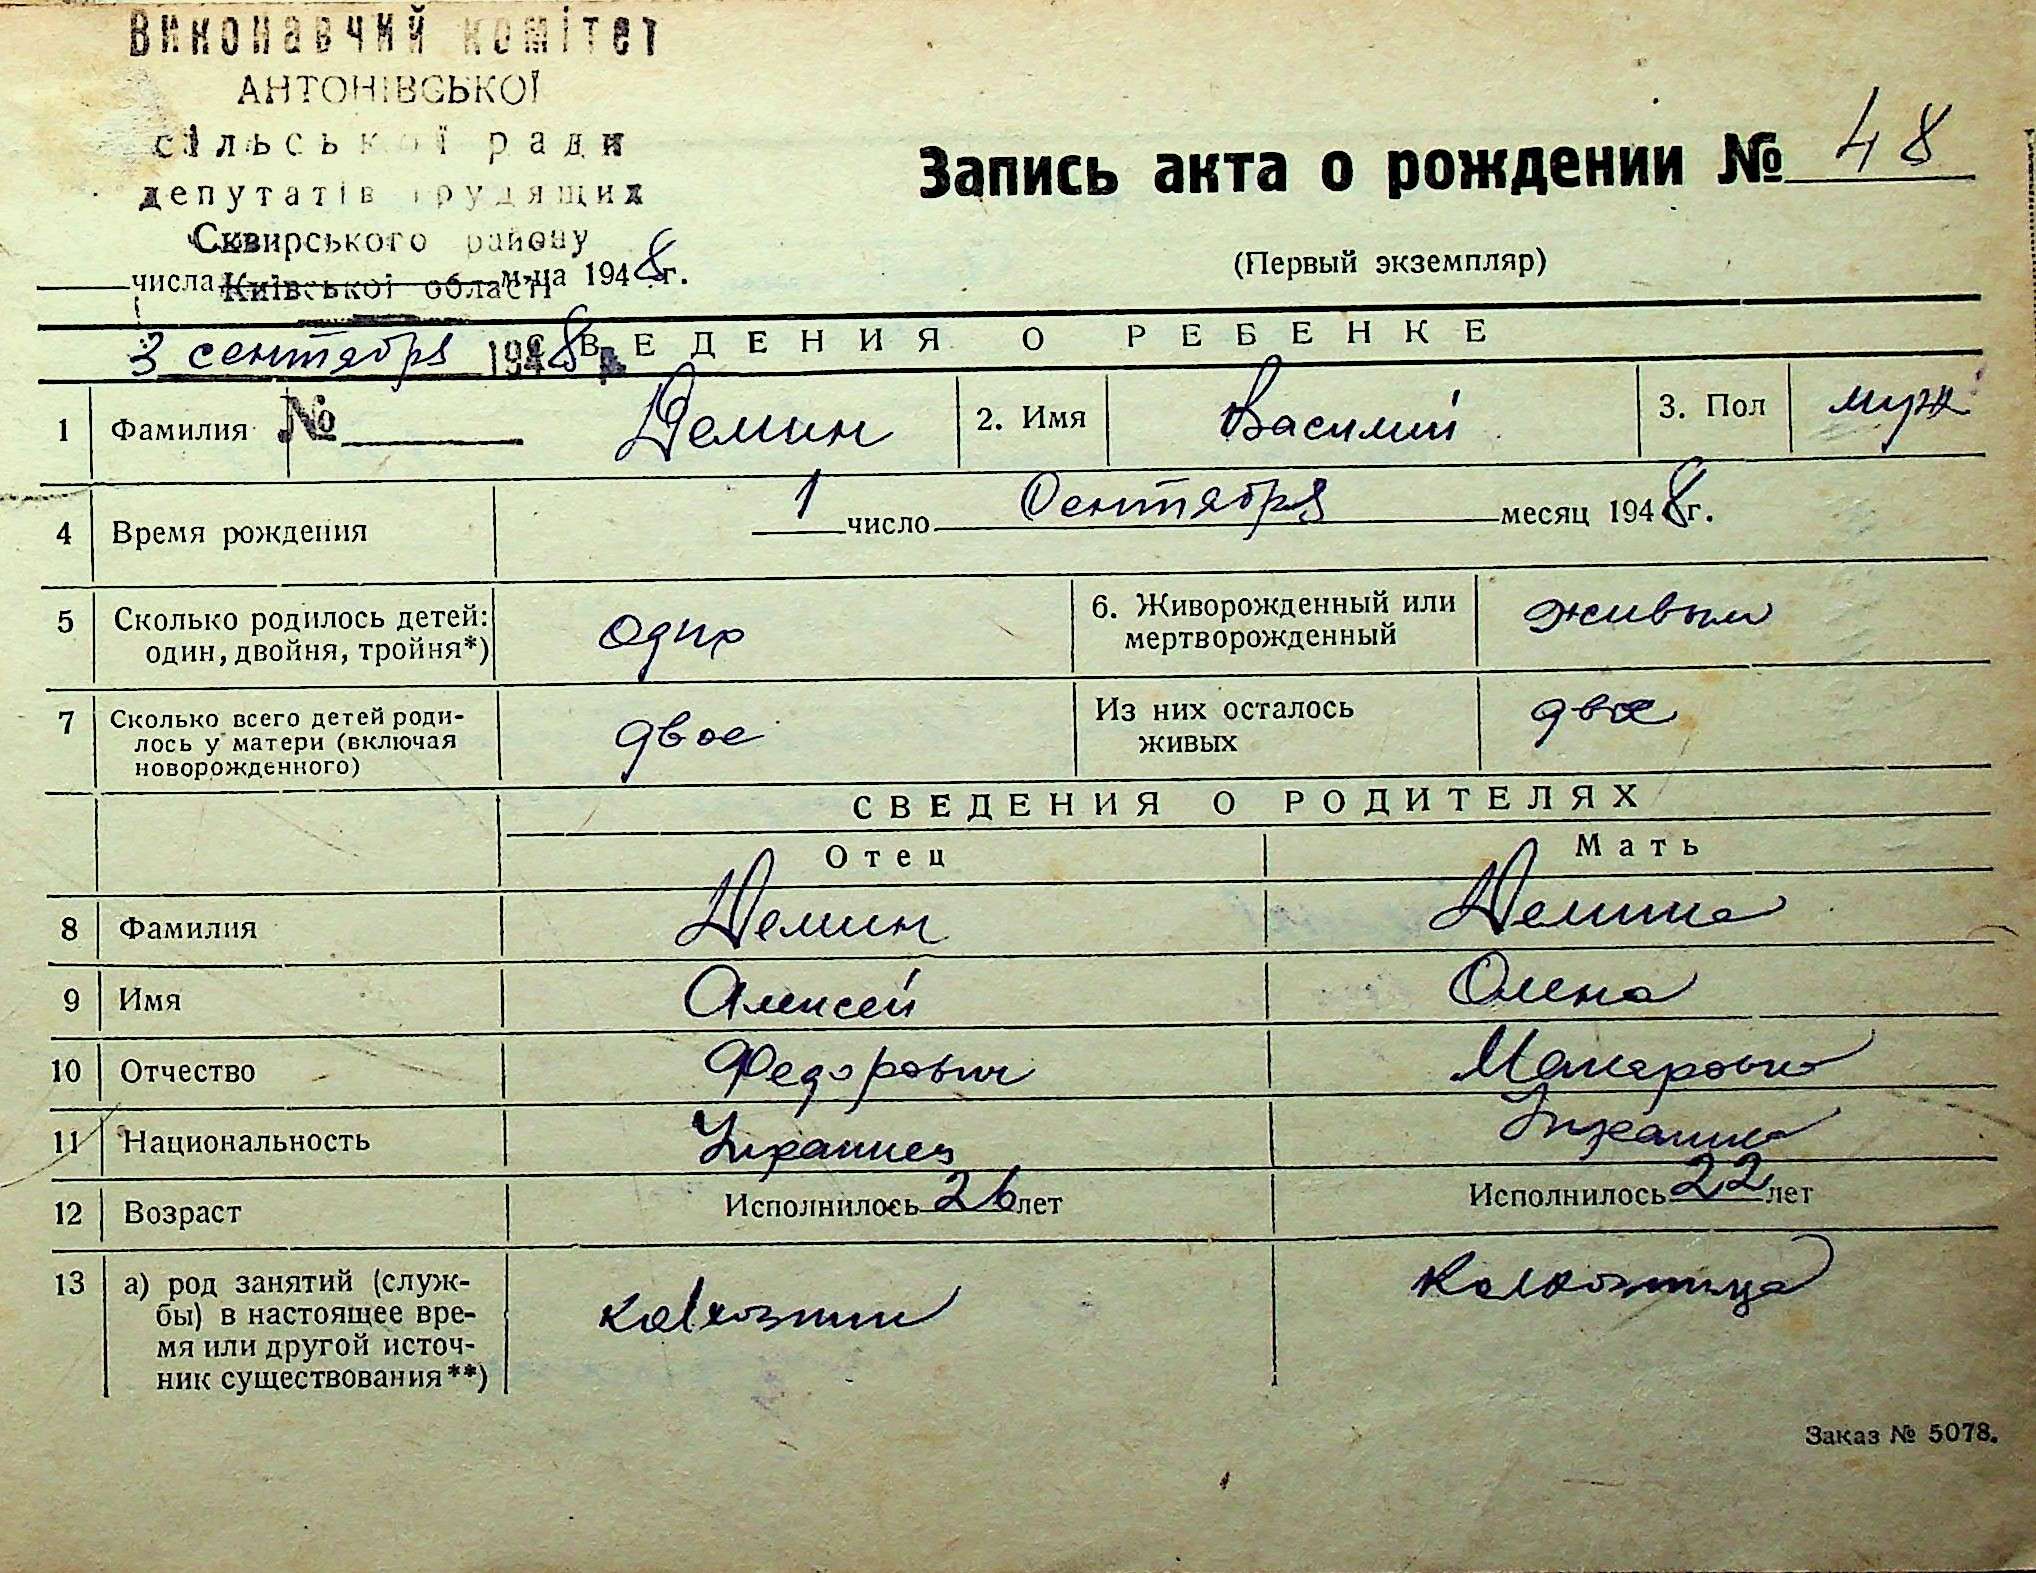 Виконавчий комітет
АНТОНІВСЬКОЇ
сільської ради
депутатів трудящих
Сквирського району
Київської області
числа м-ца 1948 г.
3 сентября 1948 р.
№
Запись акта о рождении № 48
(Первый экземпляр)
СВЕДЕНИЯ О РЕБЕНКЕ
1 Фамилия Демин 2. Имя Василий 3. Пол муж
4 Время рождения 1 число Сентября месяц 1948 г.
5 Сколько родилось детей: один, двойня, тройня*) один 6. Живорожденный или мертворожденный живым
7 Сколько всего детей роди-
лось у матери (включая
новорожденного) двое Из них осталось живых двое
СВЕДЕНИЯ О РОДИТЕЛЯХ
Отец Мать
8 Фамилия Демин Демина
9 Имя Алексей Олена
10 Отчество Федорович Макаровна
11 Национальность Украинец Украинка
12 Возраст Исполнилось 26 лет Исполнилось 22 лет
13 а) род занятий (служ-
бы) в настоящее вре-
мя или другой источ-
ник существования**) колхозник колхозница
Заказ № 5078.